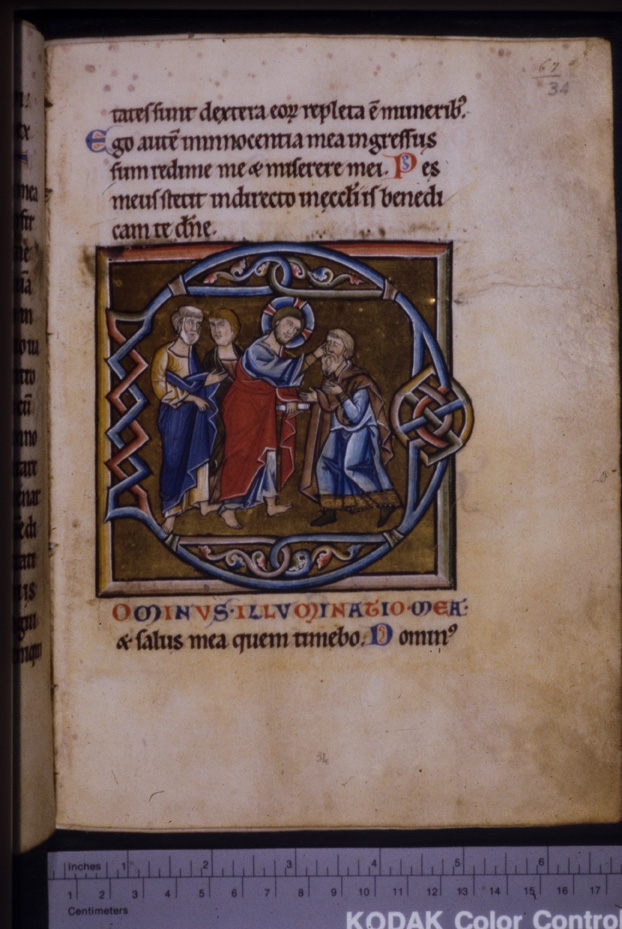 67
34
tates sunt dextera eoꝝ repleta ē munerib⁹.
Ego autē in innocentia mea ingressus
sum redime me & miserere mei. Pes
meus stetit in directo in ęccliis benedi
cam te dn̄e.
DOMINUS·ILLUMINATIO·MEA·
& salus mea quem timebo. Domin⁹
Inches 1 2 3 4 5 6
1 2 3 4 5 6 7 8 9 10 11 12 13 14 15 16 17
Centimeters
KODAK Color Control